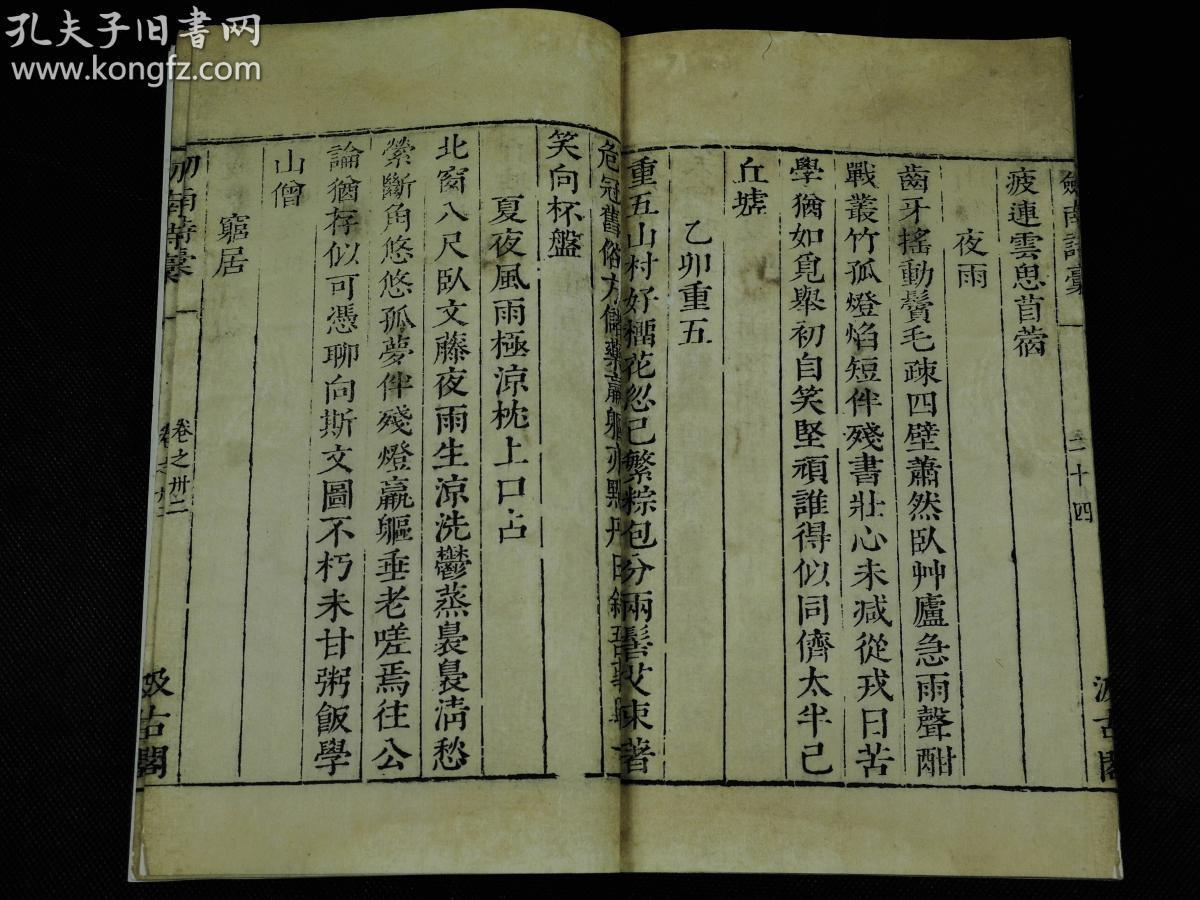 孔夫子旧书网
www.kongfz.com
劍南詩稾 二十四 汲古閣
疲連雲思苜蓿
夜雨
齒牙搖動鬢毛疎四壁蕭然臥艸廬急雨聲酣
戰叢竹孤燈焰短伴殘書壯心未减從戎日苦
學猶如覓舉初自笑堅頑誰得似同儕太半已
丘墟
乙卯重五
重五山村好榴花忽已繁粽包分兩髻艾束著
危冠舊俗方儲藥羸軀亦點丹日斜吾事畢一
笑向杯盤
夏夜風雨極涼枕上口占
北窗八尺臥文藤夜雨生涼洗鬱蒸裊裊清愁
縈斷角悠悠孤夢伴殘燈羸軀垂老嗟焉往公
論猶存似可憑聊向斯文圖不朽未甘粥飯學
山僧
窮居
劍南詩稾 卷之卅二 汲古閣